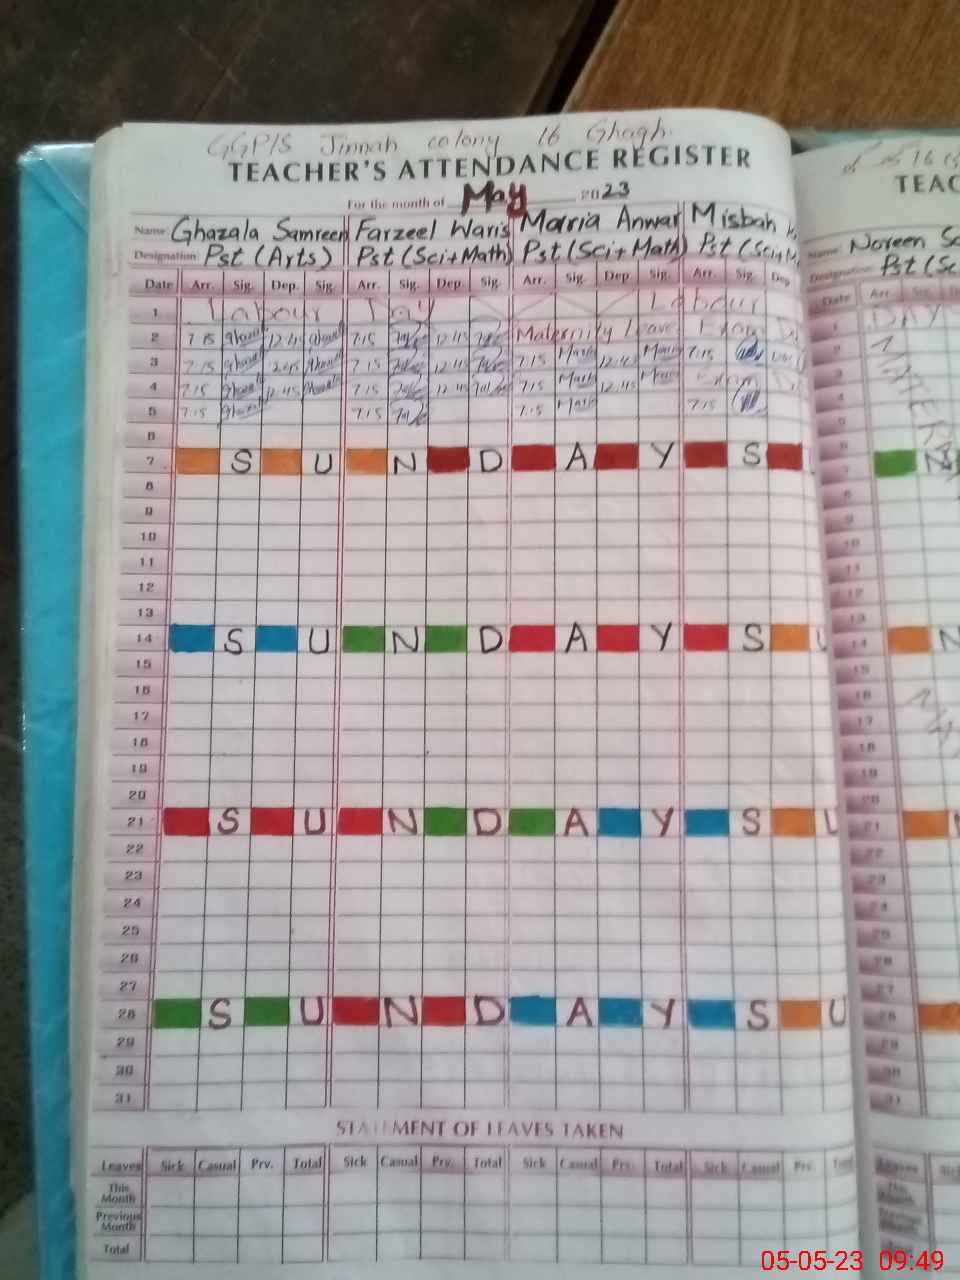 GGP/S Jinnah colony 16 Ghagh.
TEACHER'S ATTENDANCE REGISTER
For the month of May 2023
Name Ghazala Samreen Farzeel Waris Maria Anwar Misbah
Designation Pst (Arts) Pst (Sci+Math) Pst (Sci+Math) Pst (Sci+M
Date Arr. Sig. Dep. Sig. Arr. Sig. Dep. Sig. Arr. Sig. Dep. Sig. Arr. Sig. Dep
1 Labour Day Labour
2 7:15 12:45 7:15 12:45 Maternity Leave
3 7:15 12:45 7:15 12:45 7:15 12:45 7:15
4 7:15 12:45 7:15 12:45 7:15 12:45
5 7:15 7:15 7:15 7:15
6
7 S U N D A Y S
8
9
10
11
12
13
14 S U N D A Y S U
15
16
17
18
19
20
21 S U N D A Y S U
22
23
24
25
26
27
28 S U N D A Y S U
29
30
31
STATEMENT OF LEAVES TAKEN
Leaves Sick Casual Prv. Total Sick Casual Prv. Total Sick Casual Prv. Total Sick Casual Prv. Total
This Month
Previous Month
Total
TEAC
Name Noreen
Designation Pst (Sc
Date Arr. Sig.
DAY
05-05-23 09:49